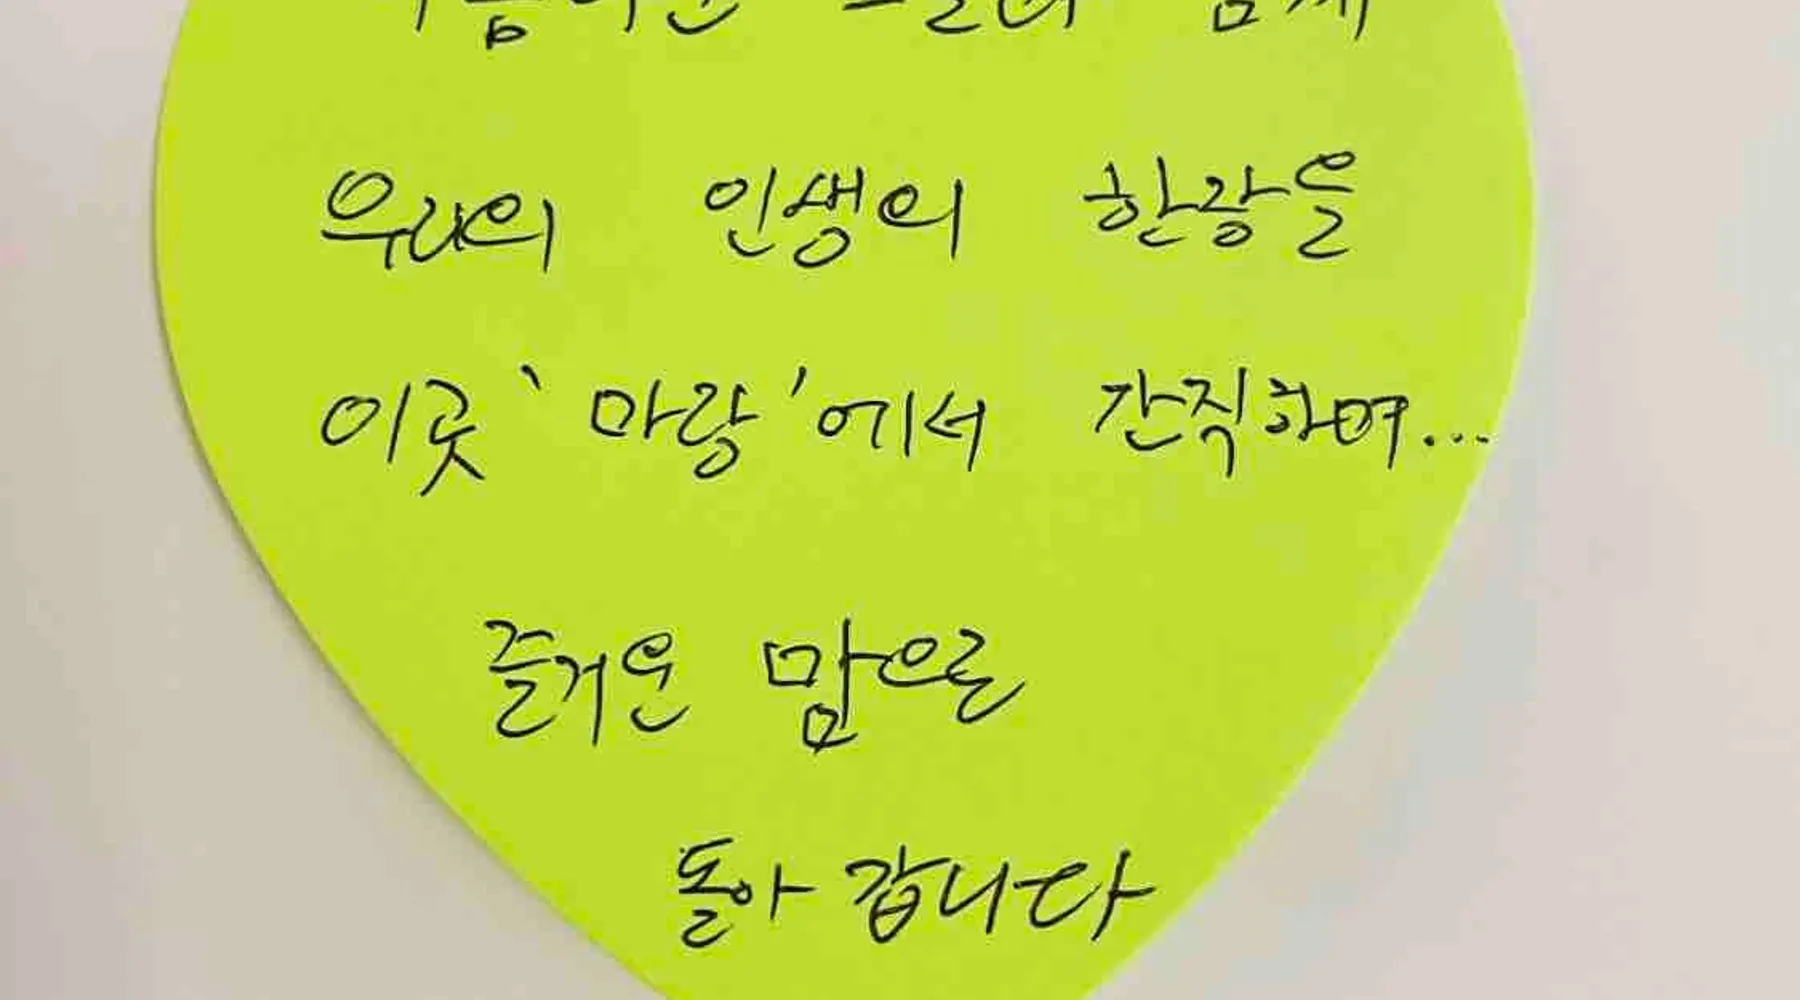 우리의 인생의 한랑을
이곳 '마랑'에서 간직하며...
즐거운 맘으로
돌아 갑니다